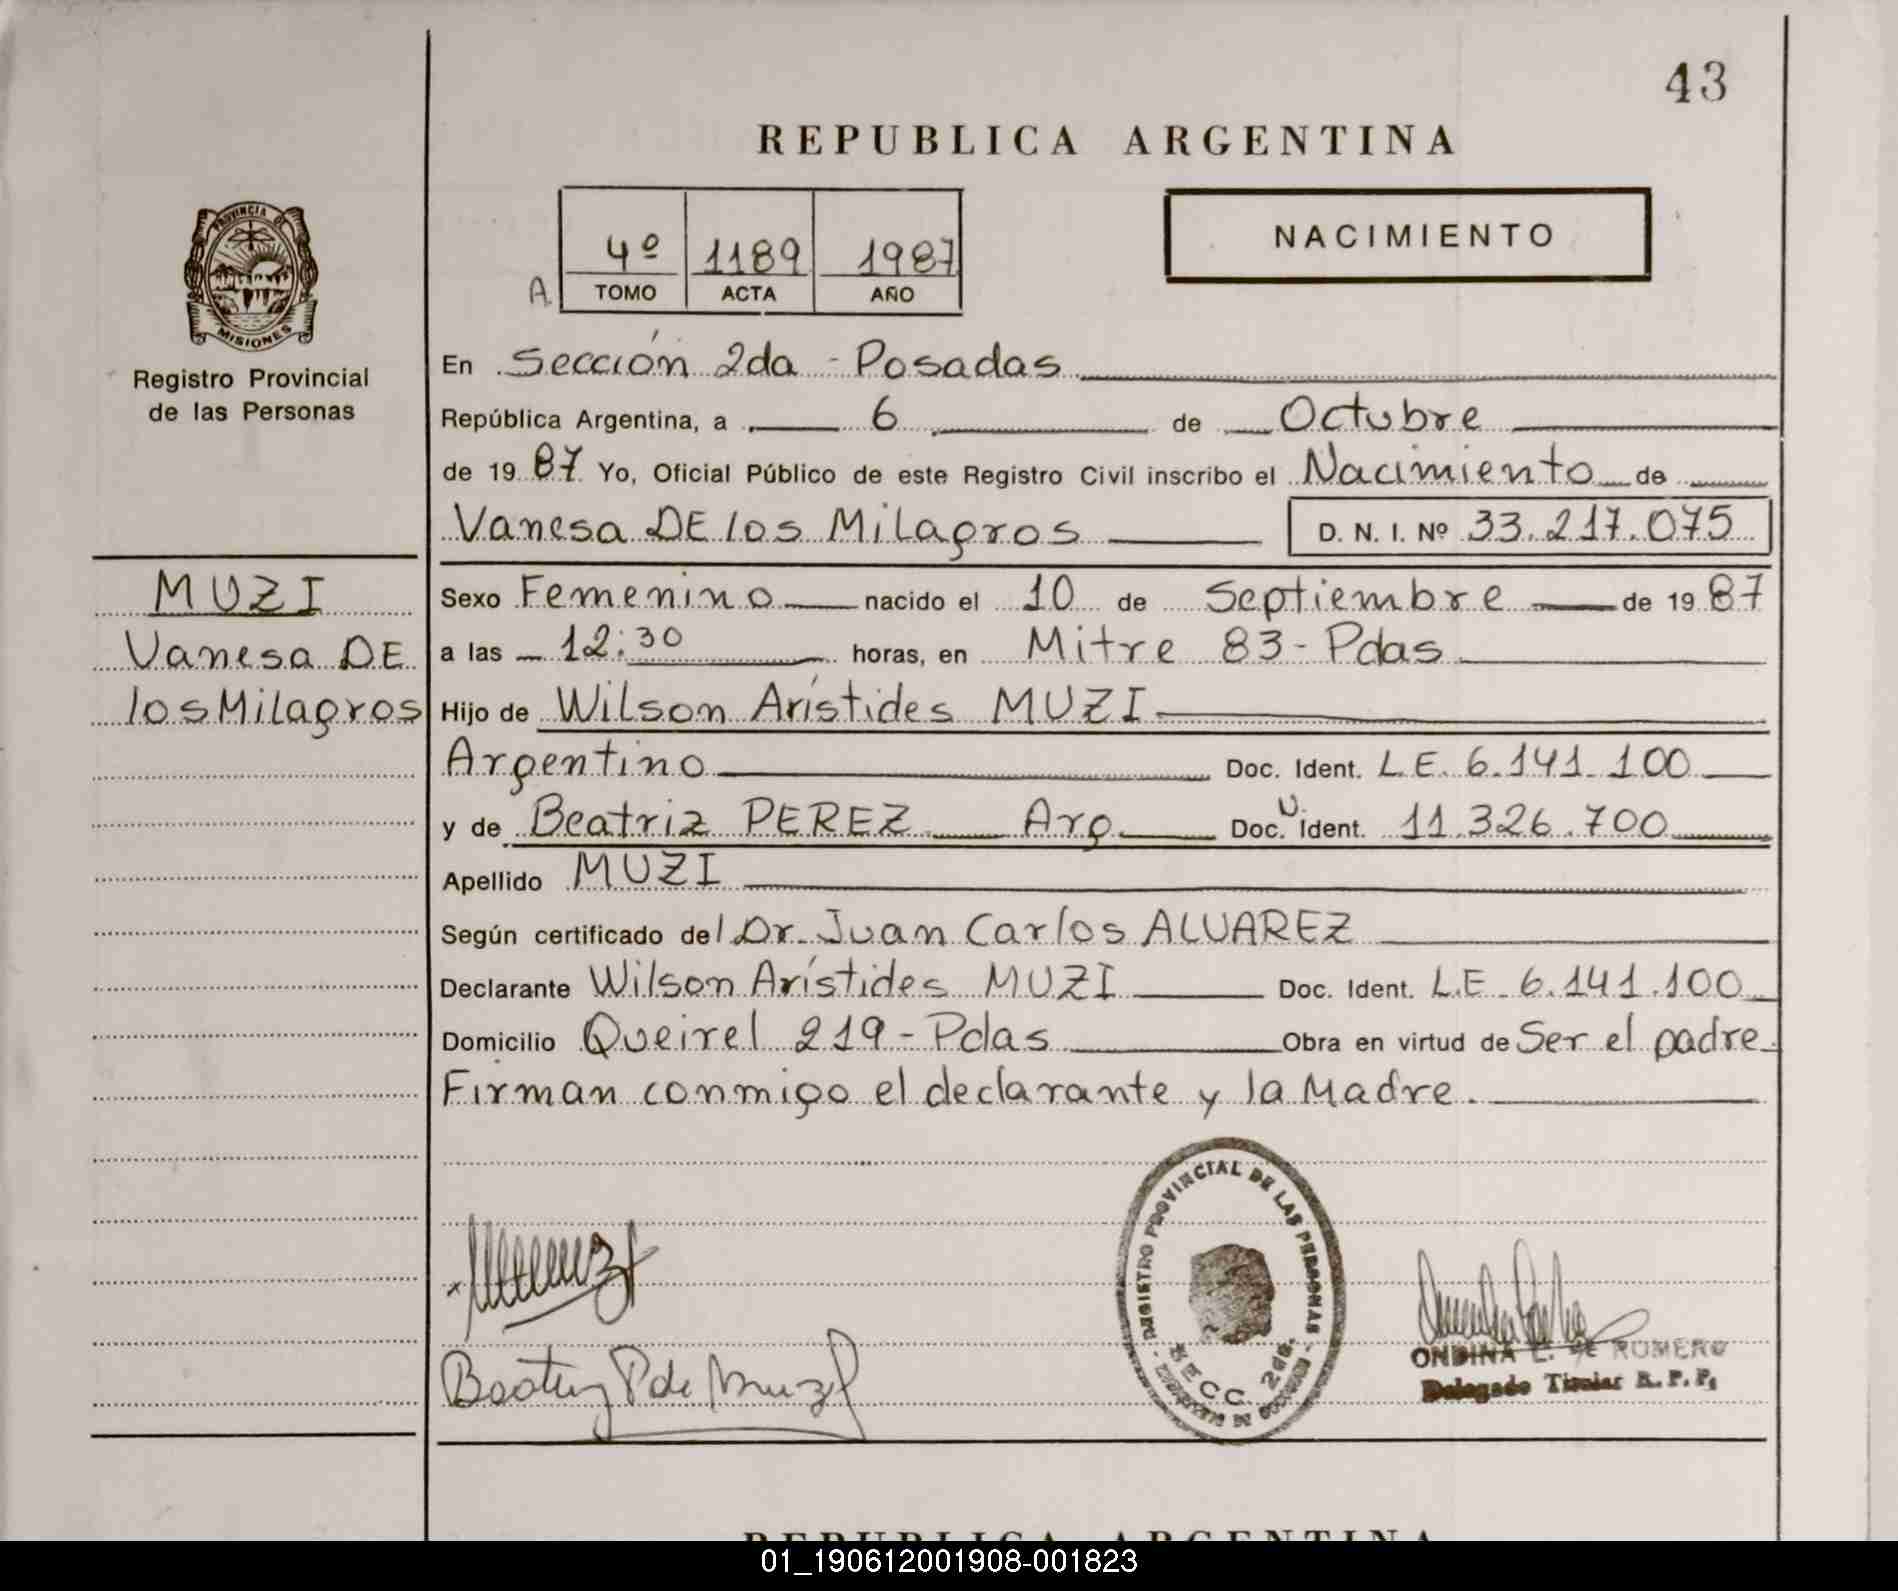 43
REPUBLICA ARGENTINA
NACIMIENTO
4º 1189 1987
A TOMO ACTA AÑO
PROVINCIA DE
MISIONES
Registro Provincial
de las Personas
En Sección 2da - Posadas
República Argentina, a 6 de Octubre
de 1987 Yo, Oficial Público de este Registro Civil inscribo el Nacimiento de
Vanesa DE los Milagros D. N. I. Nº 33.217.075
MUZI
Vanesa DE
los Milagros
Sexo Femenino nacido el 10 de Septiembre de 1987
a las 12:30 horas, en Mitre 83 - Pdas
Hijo de Wilson Arístides MUZI
Argentino Doc. Ident. L.E. 6.141.100
y de Beatriz PEREZ Arg Doc. U. Ident. 11.326.700
Apellido MUZI
Según certificado del Dr. Juan Carlos ALVAREZ
Declarante Wilson Arístides MUZI Doc. Ident. L.E. 6.141.100
Domicilio Queirel 219 - Pdas Obra en virtud de Ser el padre
Firman conmigo el declarante y la Madre.
REGISTRO PROVINCIAL DE LAS PERSONAS
SECC. 2da.
Beatriz P de Muzi
ONDINA L. DE ROMERO
Delegado Titular R. P. P.
REPUBLICA ARGENTINA
01_190612001908-001823